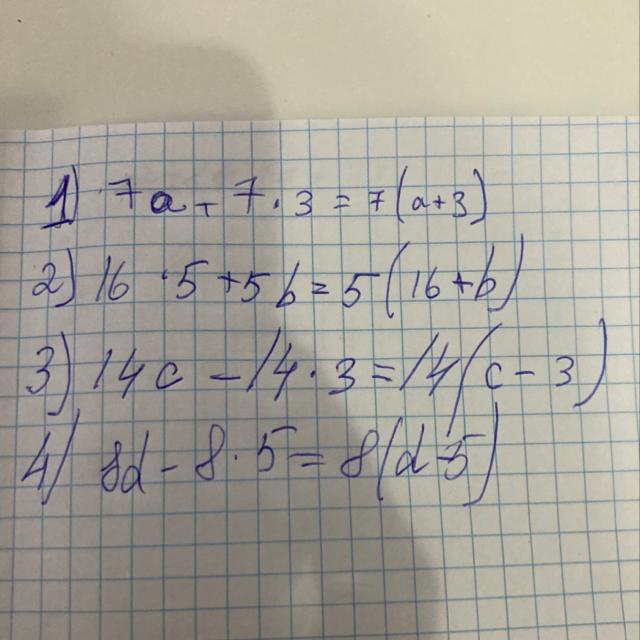 1) 7a + 7 · 3 = 7(a+3)
2) 16 · 5 + 5b = 5(16+b)
3) 14c - 14 · 3 = 14(c - 3)
4) 8d - 8 · 5 = 8(d-5)